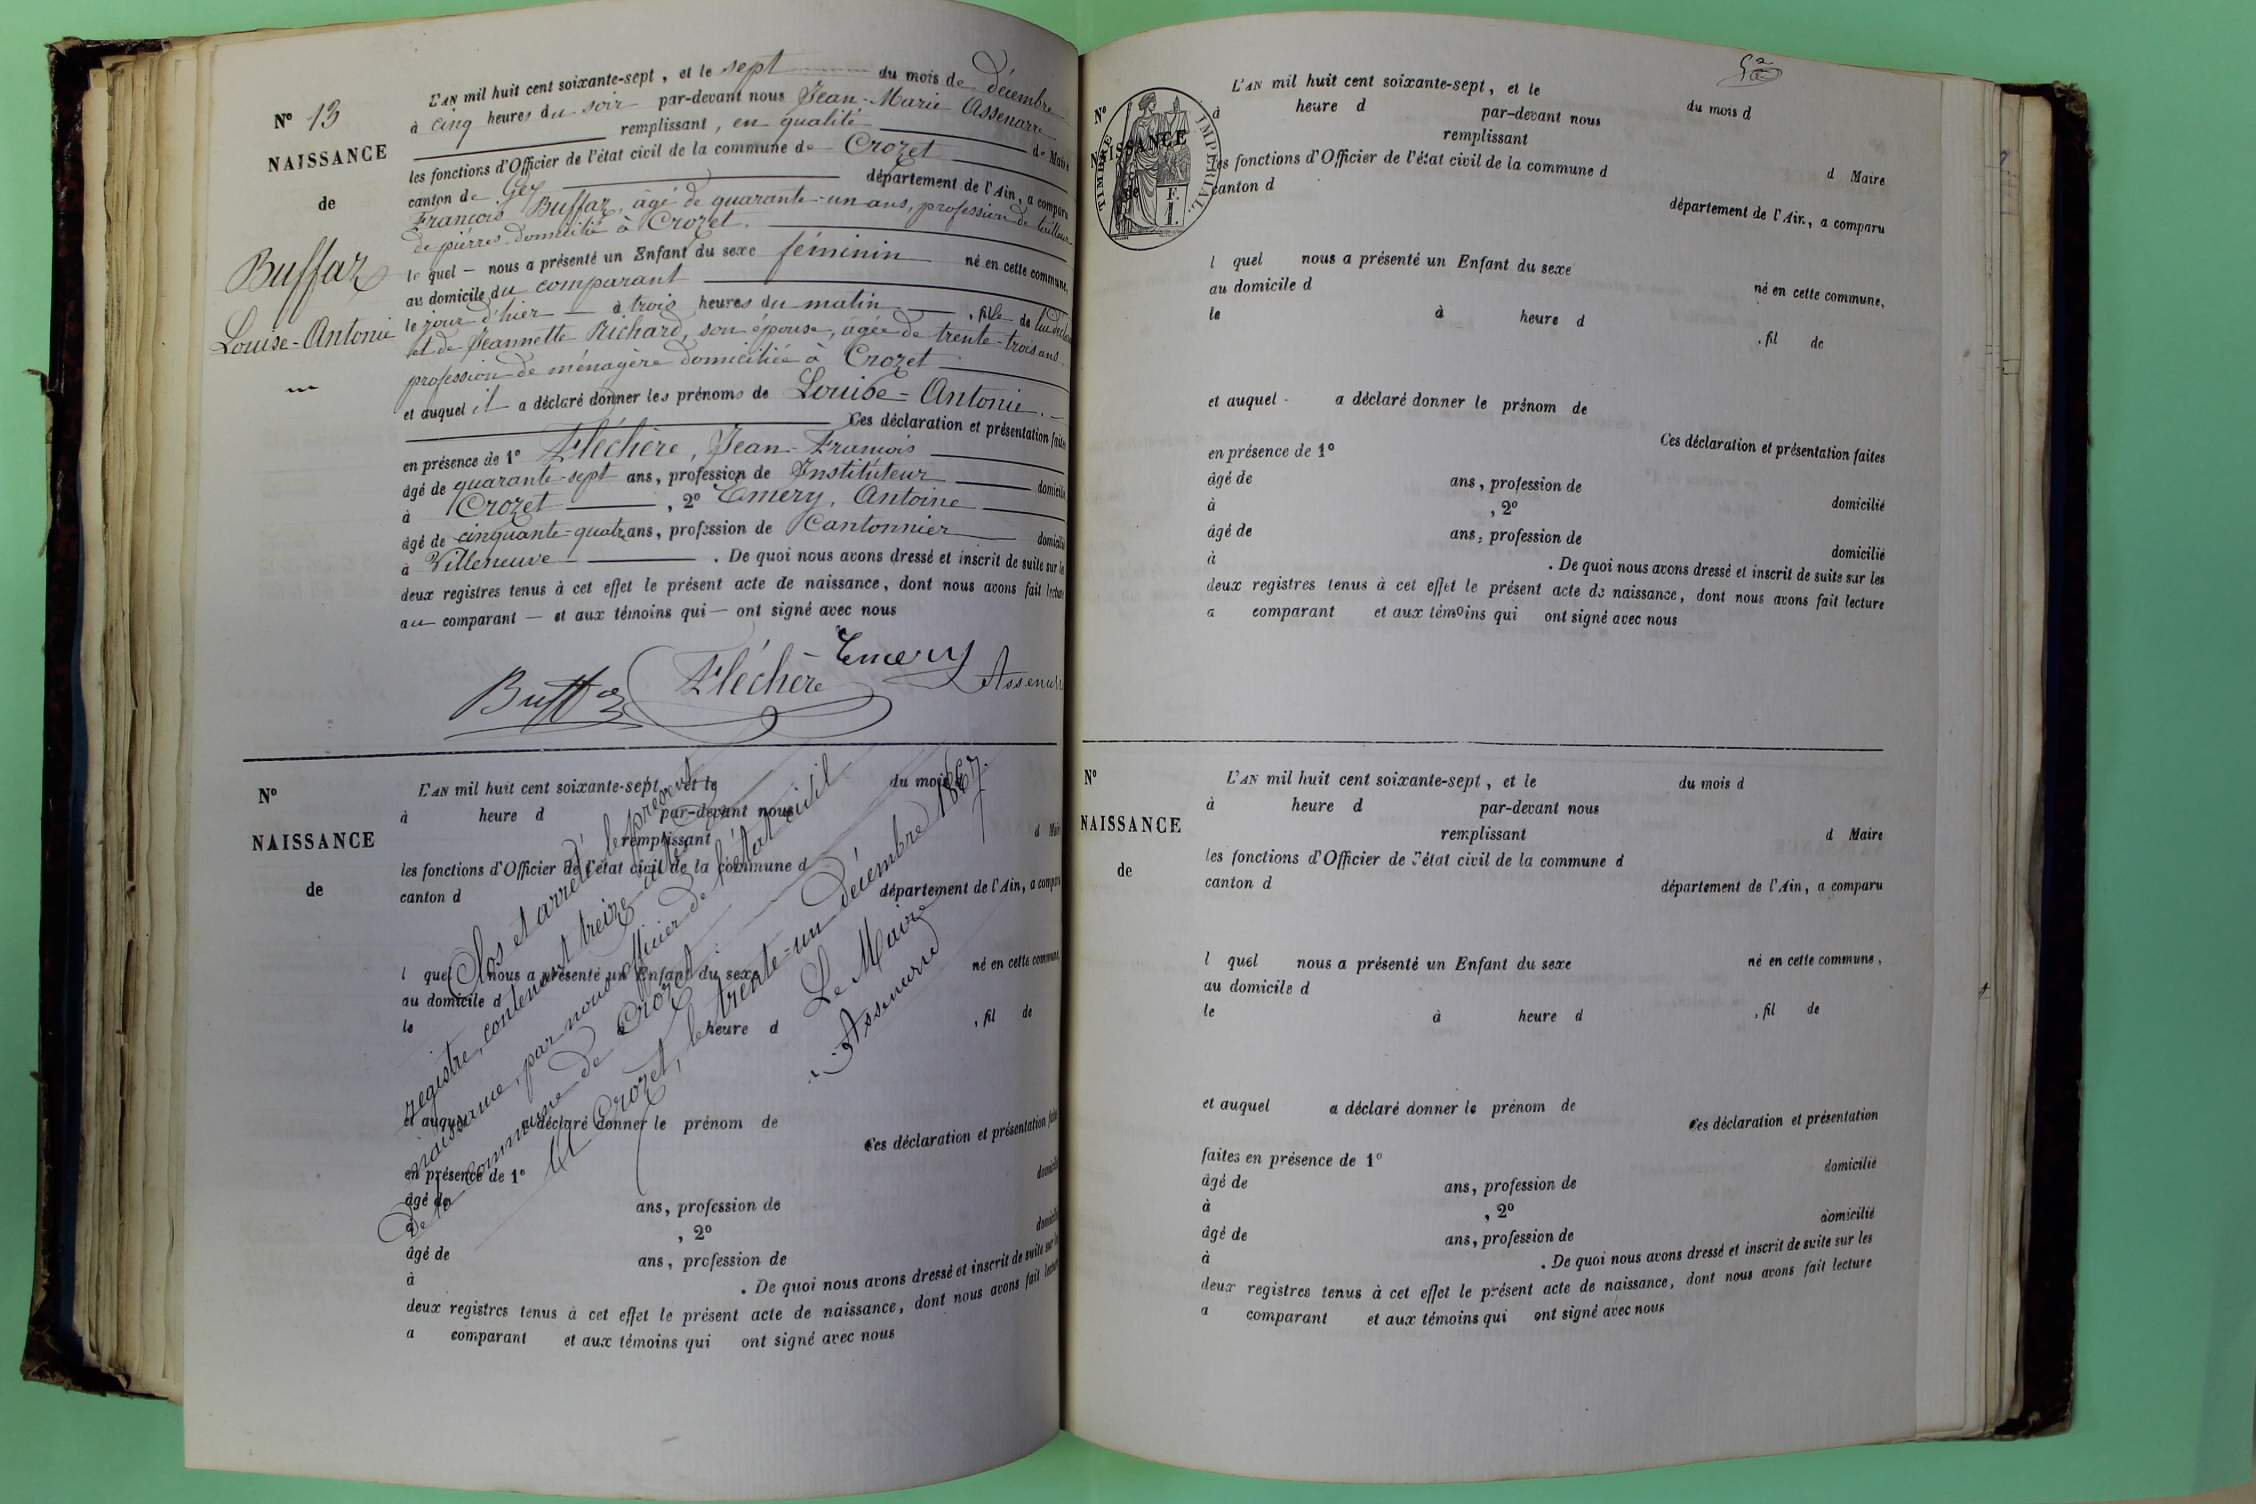 N° 13
NAISSANCE
de
Buffaz
Louise-Antonie
L'AN mil huit cent soixante-sept, et le sept du mois de décembre
à cinq heures du soir par-devant nous Jean-Marie Assenarre
remplissant, en qualité de Maire
les fonctions d'Officier de l'état civil de la commune de Crozet
canton de Gex département de l'Ain, a comparu
François Buffaz, âgé de quarante-un ans, profession de tailleur
de pierres domicilié à Crozet.
lequel nous a présenté un Enfant du sexe féminin né en cette commune,
au domicile du comparant
le jour d'hier à trois heures du matin, fille de lui
et de Jeannette Richard, son épouse, âgée de trente-trois ans
profession de ménagère domiciliée à Crozet
et auquel il a déclaré donner les prénoms de Louise-Antonie.
Ces déclaration et présentation faites
en présence de 1° Fléchère, Jean-François
âgé de quarante-sept ans, profession de Instituteur domicilié
à Crozet, 2° Emery, Antoine
âgé de cinquante-quatre ans, profession de Cantonnier domicilié
à Villeneuve. De quoi nous avons dressé et inscrit de suite sur les
deux registres tenus à cet effet le présent acte de naissance, dont nous avons fait lecture
au comparant et aux témoins qui ont signé avec nous
Buffaz Fléchère Emery Assenarre
N°
NAISSANCE
de
L'AN mil huit cent soixante-sept, et le du mois d
à heure d par-devant nous
remplissant d Maire
les fonctions d'Officier de l'état civil de la commune d
canton d département de l'Ain, a comparu
l quel nous a présenté un Enfant du sexe né en cette commune,
au domicile d
le à heure d , fil de
et auquel a déclaré donner le prénom de
Ces déclaration et présentation faites
en présence de 1° domicilié
âgé de ans, profession de
à , 2° domicilié
âgé de ans, profession de
à . De quoi nous avons dressé et inscrit de suite sur les
deux registres tenus à cet effet le présent acte de naissance, dont nous avons fait lecture
a comparant et aux témoins qui ont signé avec nous
Clos et arrêté le présent
registre, contenant treize actes de
naissance, par nous officier de l'état civil
de la commune de Crozet.
A Crozet, le trente-un décembre 1867.
Le Maire
Assenarre
N°
NAISSANCE
de
TIMBRE IMPERIAL
1 F.
L'AN mil huit cent soixante-sept, et le du mois d
à heure d par-devant nous
remplissant d Maire
les fonctions d'Officier de l'état civil de la commune d
canton d département de l'Ain, a comparu
l quel nous a présenté un Enfant du sexe né en cette commune,
au domicile d
le à heure d , fil de
et auquel a déclaré donner le prénom de
Ces déclaration et présentation faites
en présence de 1°
âgé de ans, profession de domicilié
à , 2°
âgé de ans, profession de domicilié
à . De quoi nous avons dressé et inscrit de suite sur les
deux registres tenus à cet effet le présent acte de naissance, dont nous avons fait lecture
a comparant et aux témoins qui ont signé avec nous
N°
NAISSANCE
de
L'AN mil huit cent soixante-sept, et le du mois d
à heure d par-devant nous
remplissant d Maire
les fonctions d'Officier de l'état civil de la commune d
canton d département de l'Ain, a comparu
l quel nous a présenté un Enfant du sexe né en cette commune,
au domicile d
le à heure d , fil de
et auquel a déclaré donner le prénom de
Ces déclaration et présentation
faites en présence de 1° domicilié
âgé de ans, profession de
à , 2° domicilié
âgé de ans, profession de
à . De quoi nous avons dressé et inscrit de suite sur les
deux registres tenus à cet effet le présent acte de naissance, dont nous avons fait lecture
a comparant et aux témoins qui ont signé avec nous